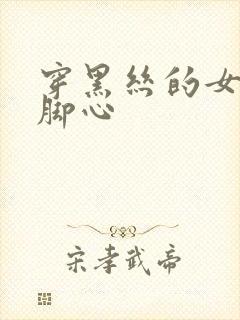 穿黑丝的女
脚心
宋孝武帝